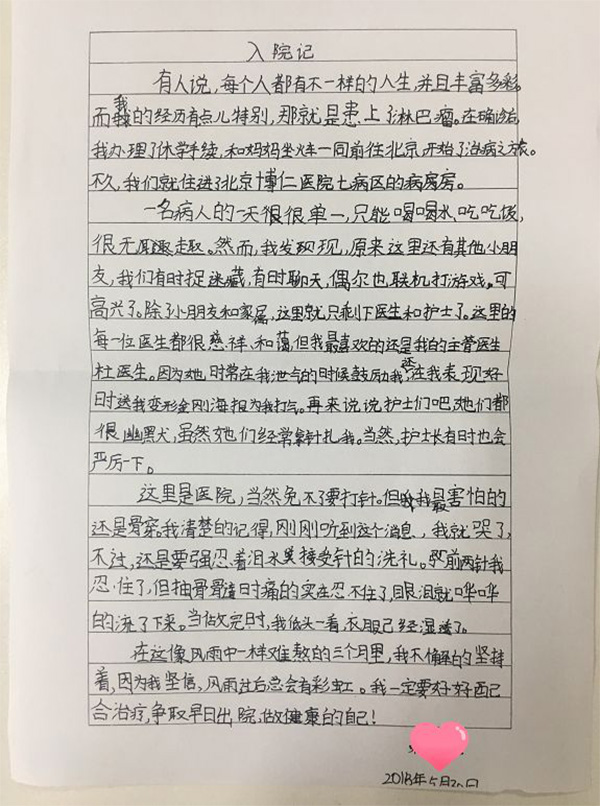 入院记
有人说，每个人都有不一样的人生，并且丰富多彩。
而我的经历有点儿特别，那就是患上了淋巴瘤。在确诊后，
我办理了休学手续，和妈妈坐火车一同前往北京，开始了治病之旅。
不久，我们就住进了北京博仁医院七病区的病房。
一名病人的一天很很单一，只能喝喝水，吃吃饭，
很无趣。然而，我发现，原来这里还有其他小朋
友，我们有时捉迷藏，有时聊天，偶尔也联机打游戏。可
高兴了。除了小朋友和家属，这里就只剩下医生和护士了。这里的
每一位医生都很慈祥、和蔼，但我最喜欢的还是我的主管医生
杜医生。因为她时常在我泄气的时候鼓励我，还在我表现好
时送我变形金刚海报为我打气。再来说说护士们吧，她们都
很幽默，虽然她们经常拿针扎我。当然，护士长有时也会
严厉一下。
这里是医院，当然免不了要打针。但我最害怕的
还是骨穿，我清楚的记得，刚刚听到这个消息，我就哭了，
不过，还是要强忍着泪水接受针的洗礼。前两针我
忍住了，但抽骨骨渣时痛的实在忍不住了，眼泪就哗哗
的流了下来。当做完时，我低头一看，衣服已经湿透了。
在这像风雨中一样难熬的三个月里，我不懈的坚持
着，因为我坚信，风雨过后总会有彩虹。我一定要好好配
合治疗，争取早日出院，做健康的自己！
2018年5月20日